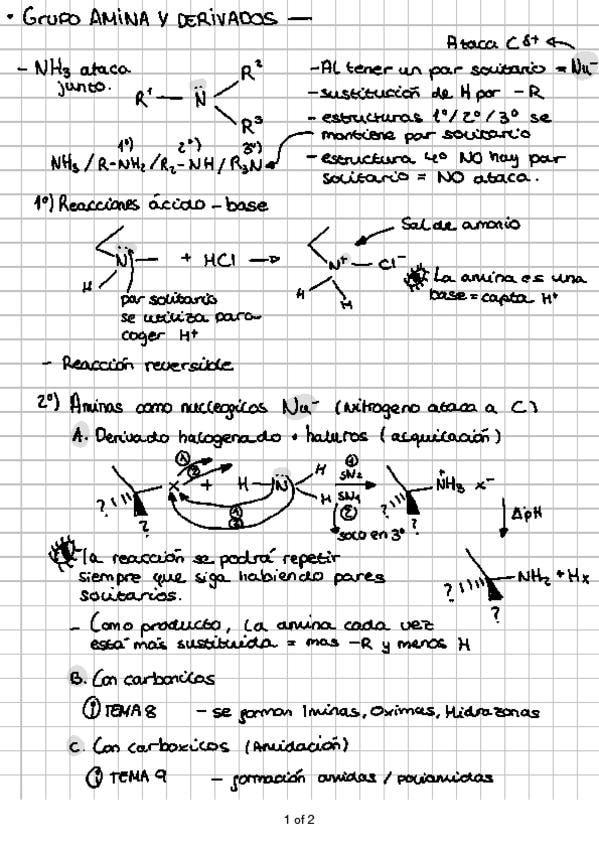 • GRUPO AMINA Y DERIVADOS —
Ataca Cδ+
- NH3 ataca
junto.
R¹ — N̈
R²
R³
- Al tener un par solitario = Nu⁻
- sustitución de H por -R
- estructuras 1º/2º/3º se
mantiene par solitario
- estructura 4º NO hay par
solitario = NO ataca.
1º) 2º) 3º)
NH3 / R-NH2 / R2-NH / R3N
1º) Reacciones ácido - base
Sal de amonio
N + HCl → N⁺ — Cl⁻
H
H H
par solitario
se utiliza para
coger H⁺
La amina es una
base = capta H⁺
- Reacción reversible
2º) Aminas como nucleofílicos Nu⁻ (Nitrogeno ataca a C)
A. Derivado halogenado o haluros (alquilación)
① ②
X + H — N̈ H H
① ②
① SN2
SN1 ②
solo en 3º
NH3 X⁻
? ?
? ?
ΔpH
NH2 + HX
? ?
La reacción se podrá repetir
siempre que siga habiendo pares
solitarios.
- Como producto, la amina cada vez
está más sustituida = mas -R y menos H
B. Con carbonilos
TEMA 8 - se forman Iminas, Oximas, Hidrazonas
C. Con carboxilos (Amidación)
TEMA 9 - formación amidas / poliamidas
1 of 2